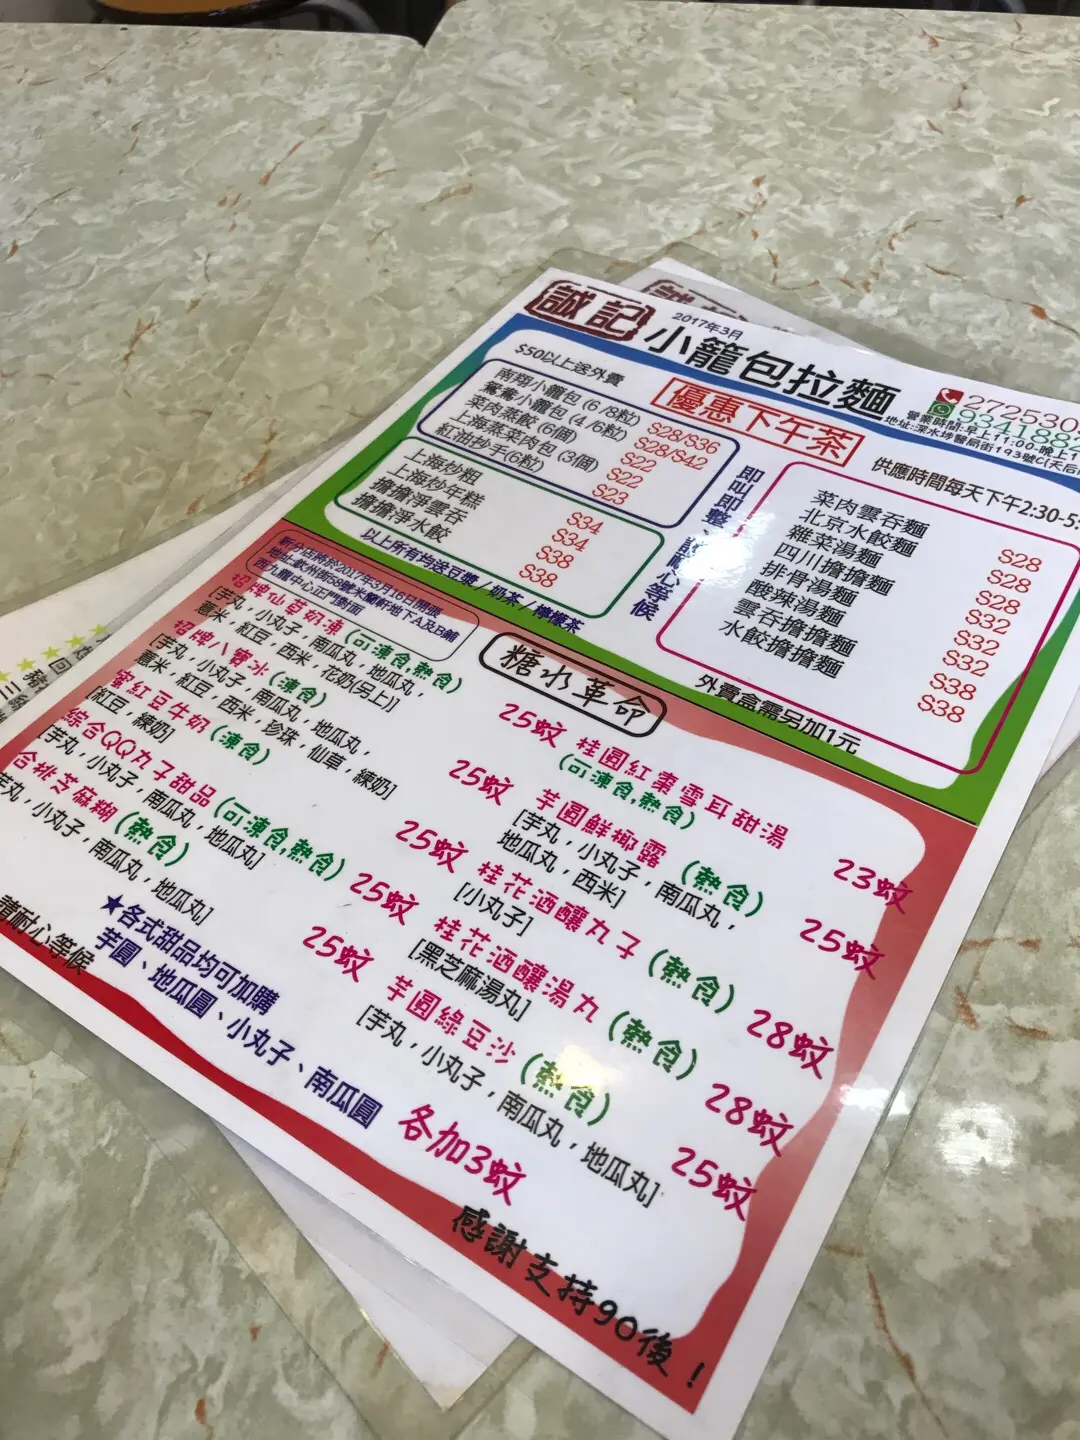 誠記
2017年3月
小籠包拉麵
272530
9341887
營業時間:早上11:00-晚上1
地址:深水埗醫局街193號C(天后
$50以上送外賣
優惠下午茶
供應時間每天下午2:30-5:
南翔小籠包 (6 /8粒) $28/$36
鴛鴦小籠包 (4 /6粒) $28/$42
菜肉蒸餃 (6個) $22
上海蒸菜肉包 (3個) $22
紅油抄手(6粒) $23
上海炒粗 $34
上海炒年糕 $34
擔擔淨雲吞 $38
擔擔淨水餃 $38
以上所有均送豆漿 / 奶茶 / 檸檬茶
即叫即整、耐心等候
菜肉雲吞麵 $28
北京水餃麵 $28
雜菜湯麵 $28
四川擔擔麵 $32
排骨湯麵 $32
酸辣湯麵 $32
雲吞擔擔麵 $38
水餃擔擔麵 $38
外賣盒需另加1元
新分店將於2017年3月16日開張
地址:欽州街58號米蘭軒地下A及B舖
西九龍中心正門對面
糖水革命
招牌仙草奶凍 (可凍食,熱食) 25蚊
[芋丸，小丸子，南瓜丸，地瓜丸，
薏米，紅豆，西米，花奶(另上)]
招牌八寶冰 (凍食) 25蚊
[芋丸，小丸子，南瓜丸，地瓜丸，
薏米，紅豆，西米，珍珠，仙草，練奶]
蜜紅豆牛奶 (凍食) 25蚊
[紅豆，練奶]
綜合QQ丸子甜品 (可凍食,熱食) 25蚊
[芋丸，小丸子，南瓜丸，地瓜丸]
合桃芝麻糊 (熱食) 25蚊
芋丸，小丸子，南瓜丸，地瓜丸]
桂圓紅棗雪耳甜湯 23蚊
(可凍食,熱食)
芋圓鮮椰露 (熱食) 25蚊
[芋丸，小丸子，南瓜丸，
地瓜丸，西米]
桂花酒釀丸子 (熱食) 28蚊
[小丸子]
桂花酒釀湯丸 (熱食) 28蚊
[黑芝麻湯丸]
芋圓綠豆沙 (熱食) 25蚊
[芋丸，小丸子，南瓜丸，地瓜丸]
請耐心等候
★各式甜品均可加購
芋圓、地瓜圓、小丸子、南瓜圓 各加3蚊
感謝支持90後！